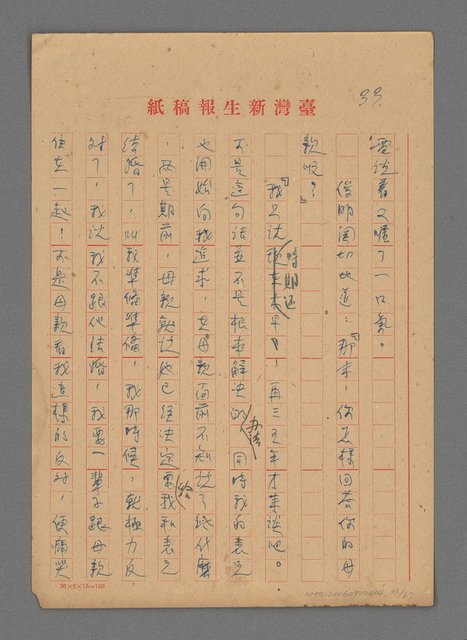 臺灣新生報稿紙
33.
雲說着又嘆了一口氣。
俊明関切地道：「那末，你怎樣回答你的母
親呢？」
「我只说時期还太早了，再三五年才来談吧。
可是這句話並不是根本解决的办法，同時我的表兄
也開始向我追求，在母親面前不知說了些什麼
，两星期前，母親就說她已經决定要給我和表兄
結婚了，叫我準備準備，我那時候，就極力反
对了，我说我不跟他结婚，我要一輩子跟母親
住在一起！可是母親看我這樣的反対，便痛哭